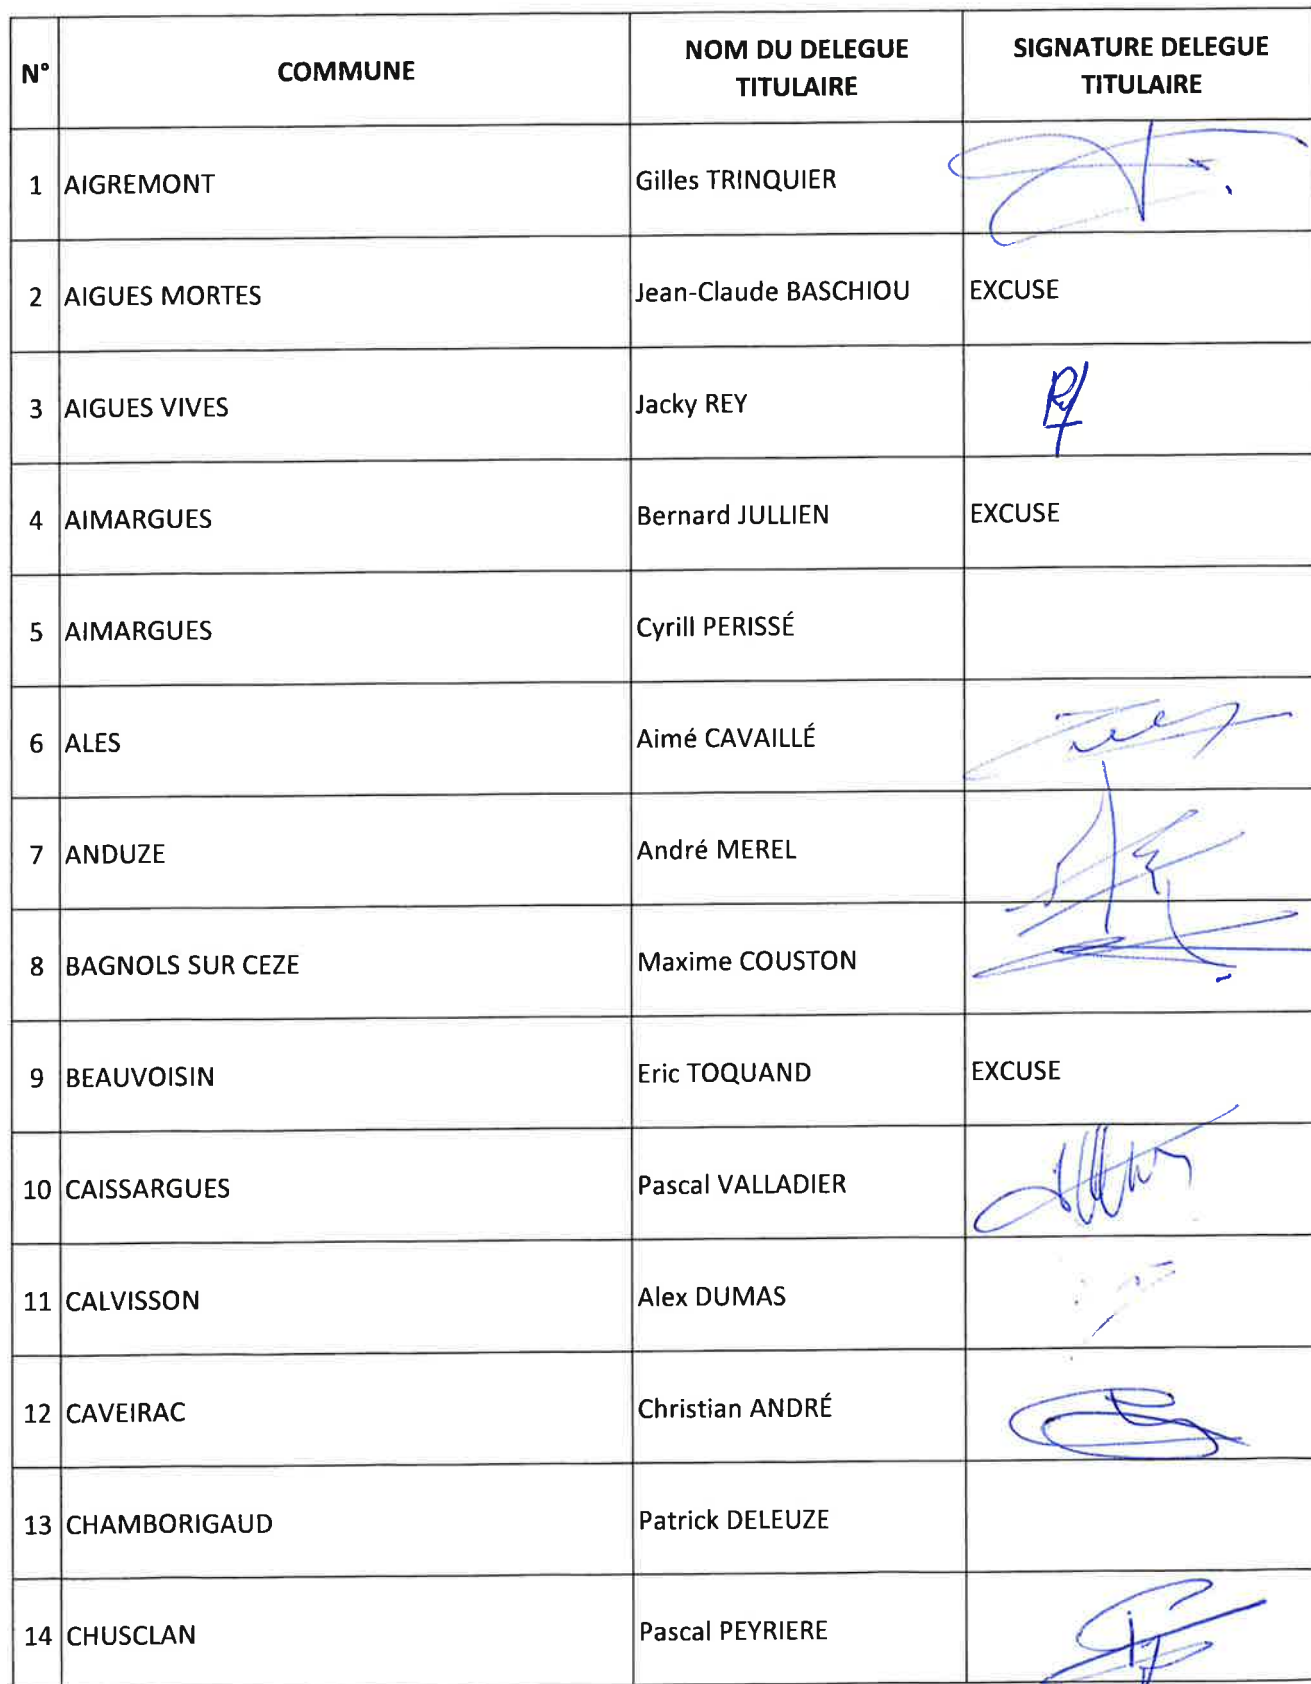 N°
COMMUNE
NOM DU DELEGUE
TITULAIRE
SIGNATURE DELEGUE
TITULAIRE
1 AIGREMONT Gilles TRINQUIER
2 AIGUES MORTES Jean-Claude BASCHIOU EXCUSE
3 AIGUES VIVES Jacky REY
4 AIMARGUES Bernard JULLIEN EXCUSE
5 AIMARGUES Cyrill PERISSÉ
6 ALES Aimé CAVAILLÉ
7 ANDUZE André MEREL
8 BAGNOLS SUR CEZE Maxime COUSTON
9 BEAUVOISIN Eric TOQUAND EXCUSE
10 CAISSARGUES Pascal VALLADIER
11 CALVISSON Alex DUMAS
12 CAVEIRAC Christian ANDRÉ
13 CHAMBORIGAUD Patrick DELEUZE
14 CHUSCLAN Pascal PEYRIERE